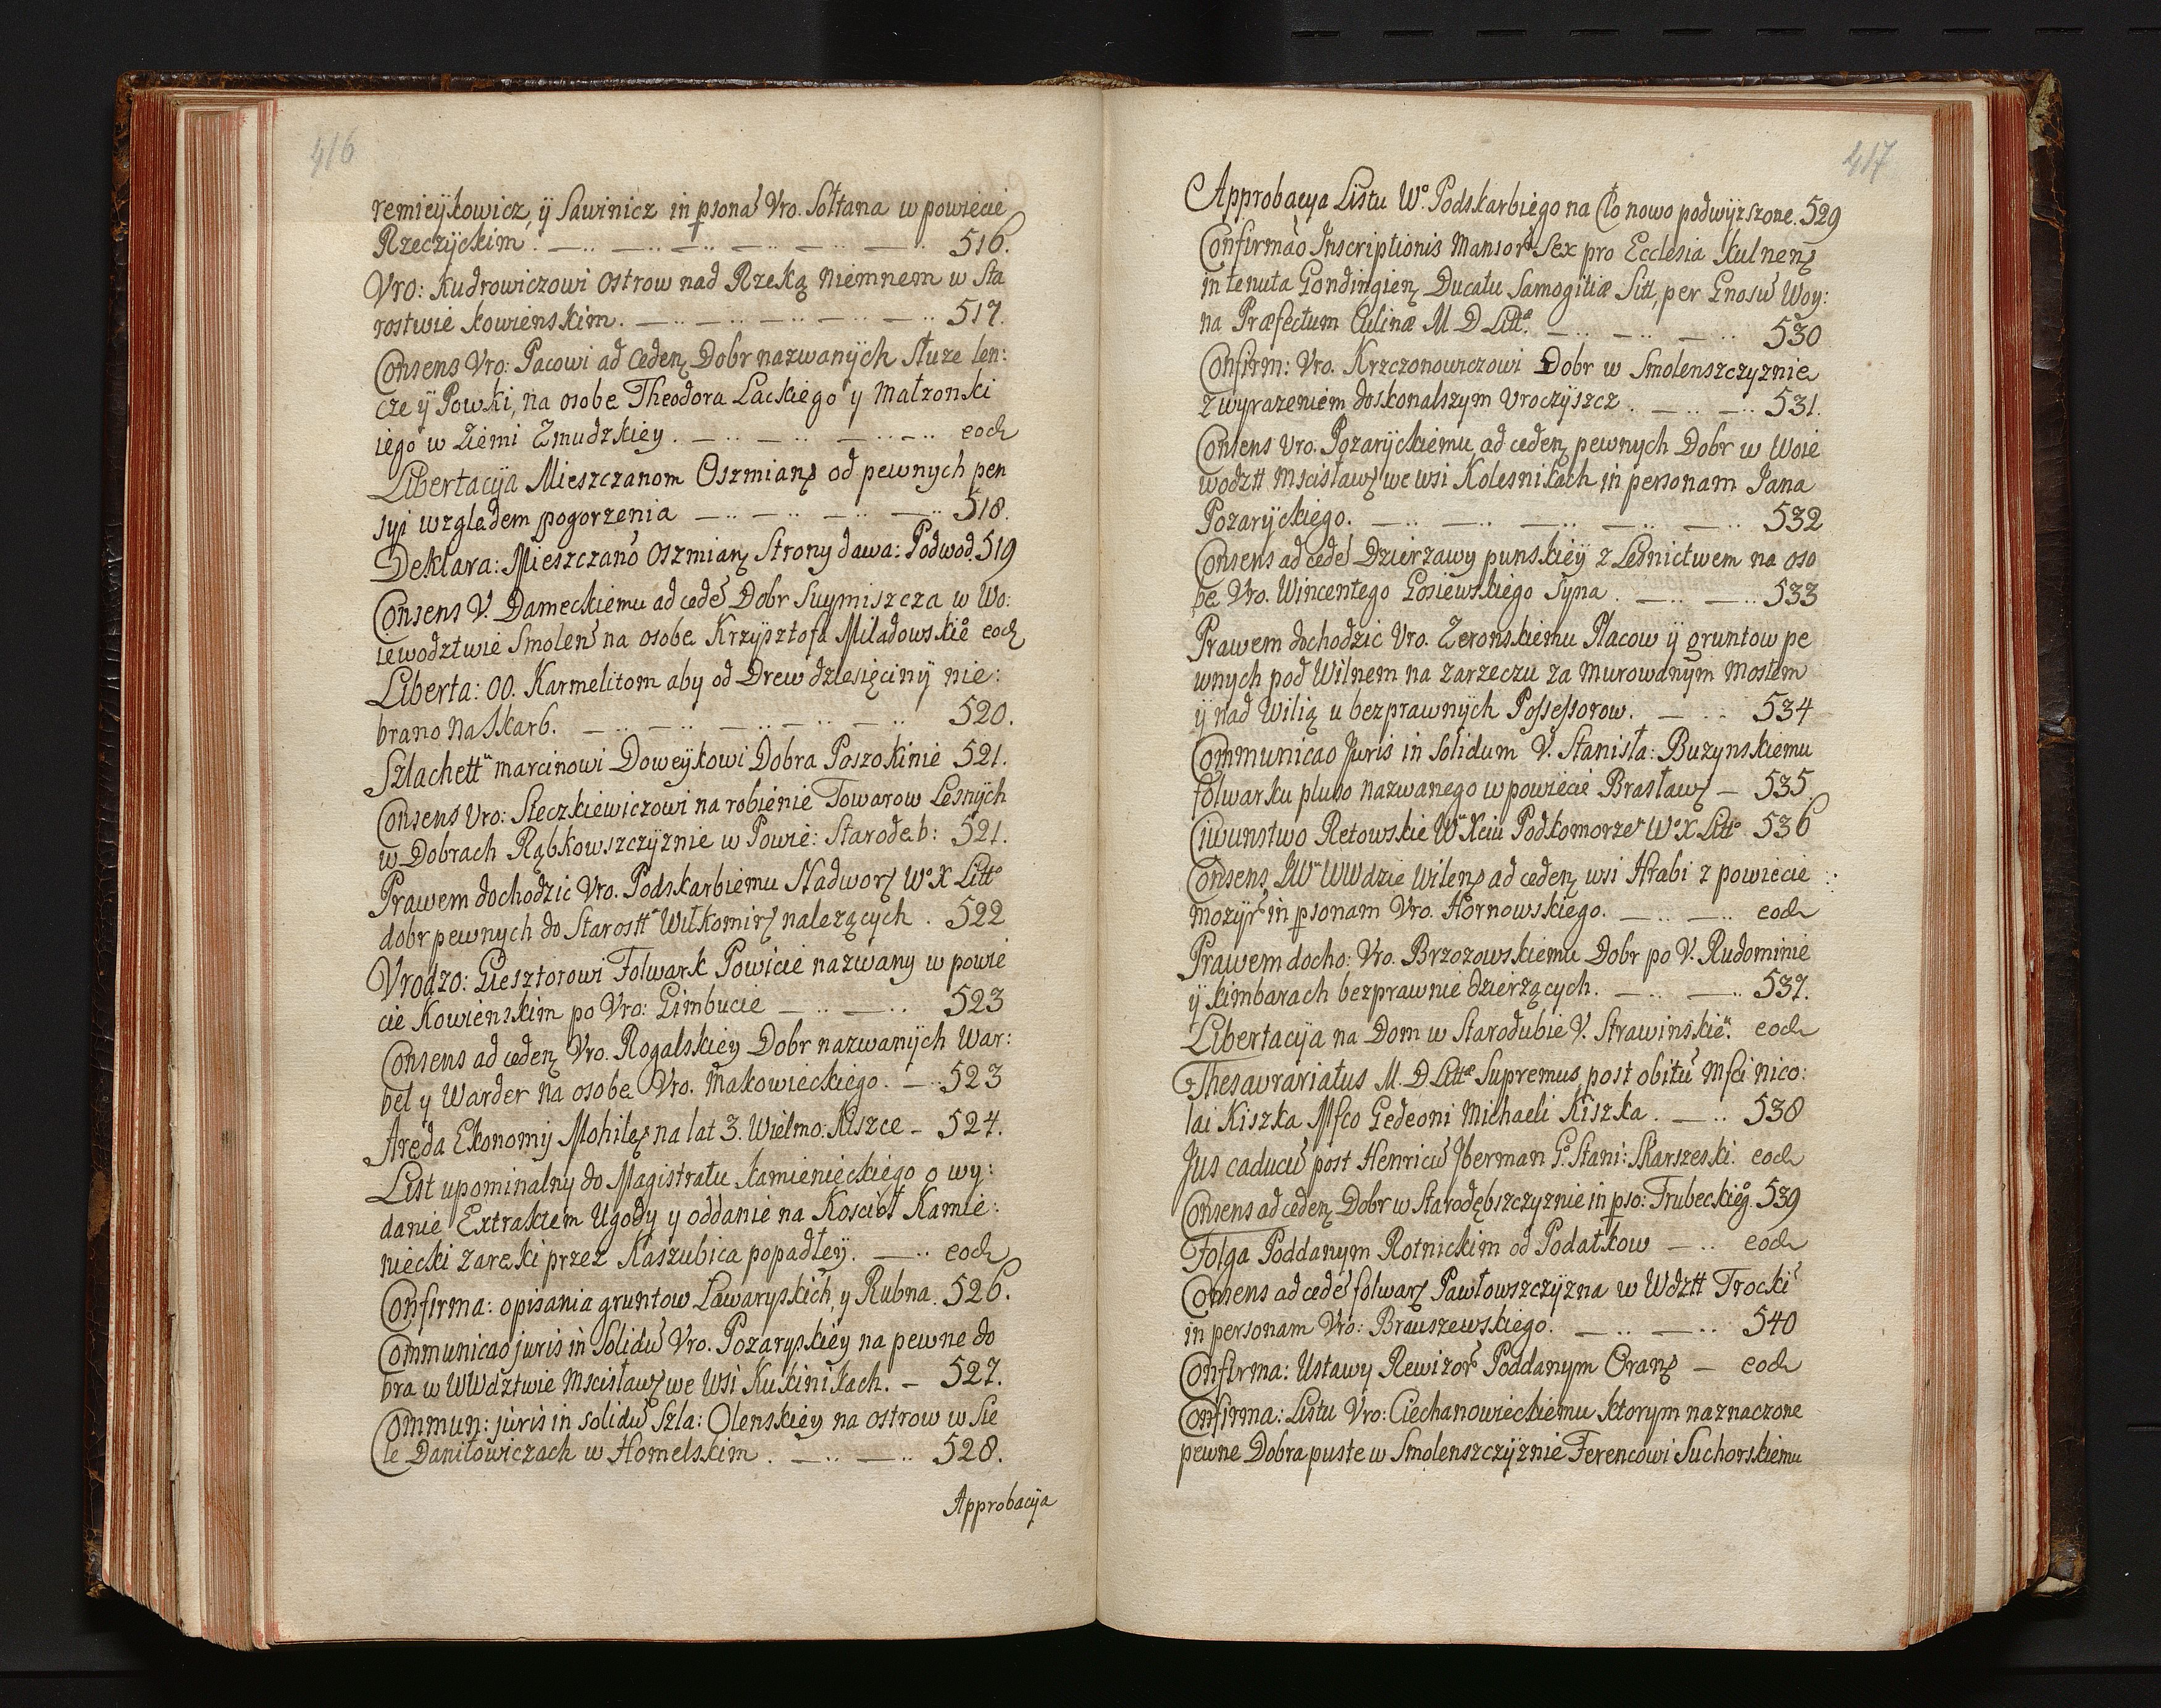 416
remieÿkowicz, ÿ Sawinicz in psonã Vro. Sołtana w powiecie
Rzeczÿckim. — .. — .. — .. — .. — .. — .. 516.
Vro: Kudrowiczowi Ostrow nad Rzeką Niemnem w Sta
rostwie Kowienskim. — .. — .. — .. — .. — .. 517.
Consens Vro: Pacowi ad Ceden Dobr nazwanÿch Słuze len:
cze ÿ Powki, na osobe Theodora Lackiego y Małzonki
iego w Ziemi Zmudzkiey. — .. — .. — .. — .. eod
Libertacÿa Mieszczanom Oszmian od pewnych pen
syi wzgledem pogorzenia — .. — .. — .. — .. 518.
Deklara: Mieszczano Oszmian Strony dawa: Podwod. 519
Consens V. Dameckiemu ad cede Dobr Suymiszcza w Wo:
iewodztwie Smolen na osobe Krzÿsztofa Miladowskie eod
Liberta: OO. Karmelitom aby od Drew dziesięcinÿ nie:
brano na Skarb. — .. — .. — .. — .. — .. 520.
Szlachett marcinowi Doweÿkowi Dobra Poszokinie 521.
Consens Vro: Steczkiewiczowi na robienie Towarow Lesnÿch
w Dobrach Rąbkowszczÿznie w Powie: Starodeb: 521.
Prawem dochodzic Vro. Podskarbiemu Nadwor Wo X Litto
dobr pewnÿch do Starostt Wiłkomir nalezących. 522
Vrodzo: Giesztorowi Folwark Powicie nazwany w powie
cie Kowienskim po Vro: Gimbucie — .. — .. 523
Consens ad ceden Vro. Rogalskiey Dobr nazwanÿch War:
bel y Warder na osobe Vro. Makowieckiego. — .. 523
Aręda Ekonomÿ Mohile na lat 3. Wielmo: Kiszce — 524.
List upominalny do Magistratu Kamienieckiego o wy:
danie Extraktem Ugody y oddanie na Koscioł Kamie:
niecki zaręki przez Kaszubica popadłeÿ. — .. eod
Confirma: opisania gruntow Ławaryskich, y Rubna. 526.
Communicao juris in Solidu Vro. Pozaryskiey na pewne do
bra w WWdztwie Mscisław we Wsi Kukinikach. — 527.
Commun: juris in solidu Szla: Olenskiey na ostrow w Sie
le Daniłowiczach w Homelskim. — .. — .. 528.
Approbacÿa
417
Approbacya Listu Wo. Podskarbiego na Cło nowo podwÿzszone. 529
Confirmao Inscriptionis Mansor Sex pro Ecclesia Kulnen
in tenuta Gondingien Ducatu Samogitiæ Sitt, per Gnosu Woy:
na Præfectum Culinæ M D Litt. — .. — .. — .. 530
Confirm: Vro. Krzczonowiczowi Dobr w Smolenszczyznie
z wyrazeniem doskonalszym Vroczÿszcz. — .. — .. 531.
Consens Vro. Pozarÿckiemu ad ceden pewnych Dobr w Woie
wodztt Mscisław we wsi Kolesnikach in personam Jana
Pozarÿckiego. — .. — .. — .. — .. — .. 532
Consens ad cede Dzierzawy punskieÿ z Lesnictwem na oso
be Vro. Wincentego Gosiewskiego Syna. — .. — .. 533
Prawem dochodzic Vro. Zeronskiemu Placow ÿ gruntow pe
wnych pod Wilnem na zarzeczu za murowanÿm mostem
ÿ nad Wilią u bezprawnÿch Possessorow. — .. 534
Communicao Juris in Solidum V. Stanisła: Buzynskiemu
folwarku pluso nazwanego w powiecie Brasław — 535
Ciwunstwo Retowskie Wu Xciu Podkomorze Wo X Litto 536
Consens JW WWdzie Wilen ad ceden wsi Hrabi z powiecie
mozÿr in psonam Vro. Hornowskiego. — .. — .. eod
Prawem docho: Vro. Brzozowskiemu Dobr po V. Rudominie
ÿ kimbarach bezprawnie dzierzących. — .. — .. 537.
Libertacÿa na Dom w Starodubie V. Strawinskie. eod
Thesavrariatus M. D Littæ Supremus, post obitu Mfci nico:
lai Kiszka Mfco Gedeoni Michaeli Kiszka. — .. 538
Jus caducu post Henricu Jberman G. Stani: Skarszeski. eod
Consens ad ceden Dobr w Starodębszczyznie in pso: Trubeckieg. 539
Folga Poddanym Rotnickim od Podatkow — .. eod
Consens ad cede folwar Pawłowszczÿzna w Wdztt Trocki
in personam Vro: Brauszewskiego. — .. — .. 540
Confirma: Ustawy Rewizor Poddanym Oran — eod
Confirma: Listu Vro: Ciechanowieckiemu ktorym naznaczone
pewne Dobra puste w Smolenszczÿznie Ferencowi Suchorskiemu